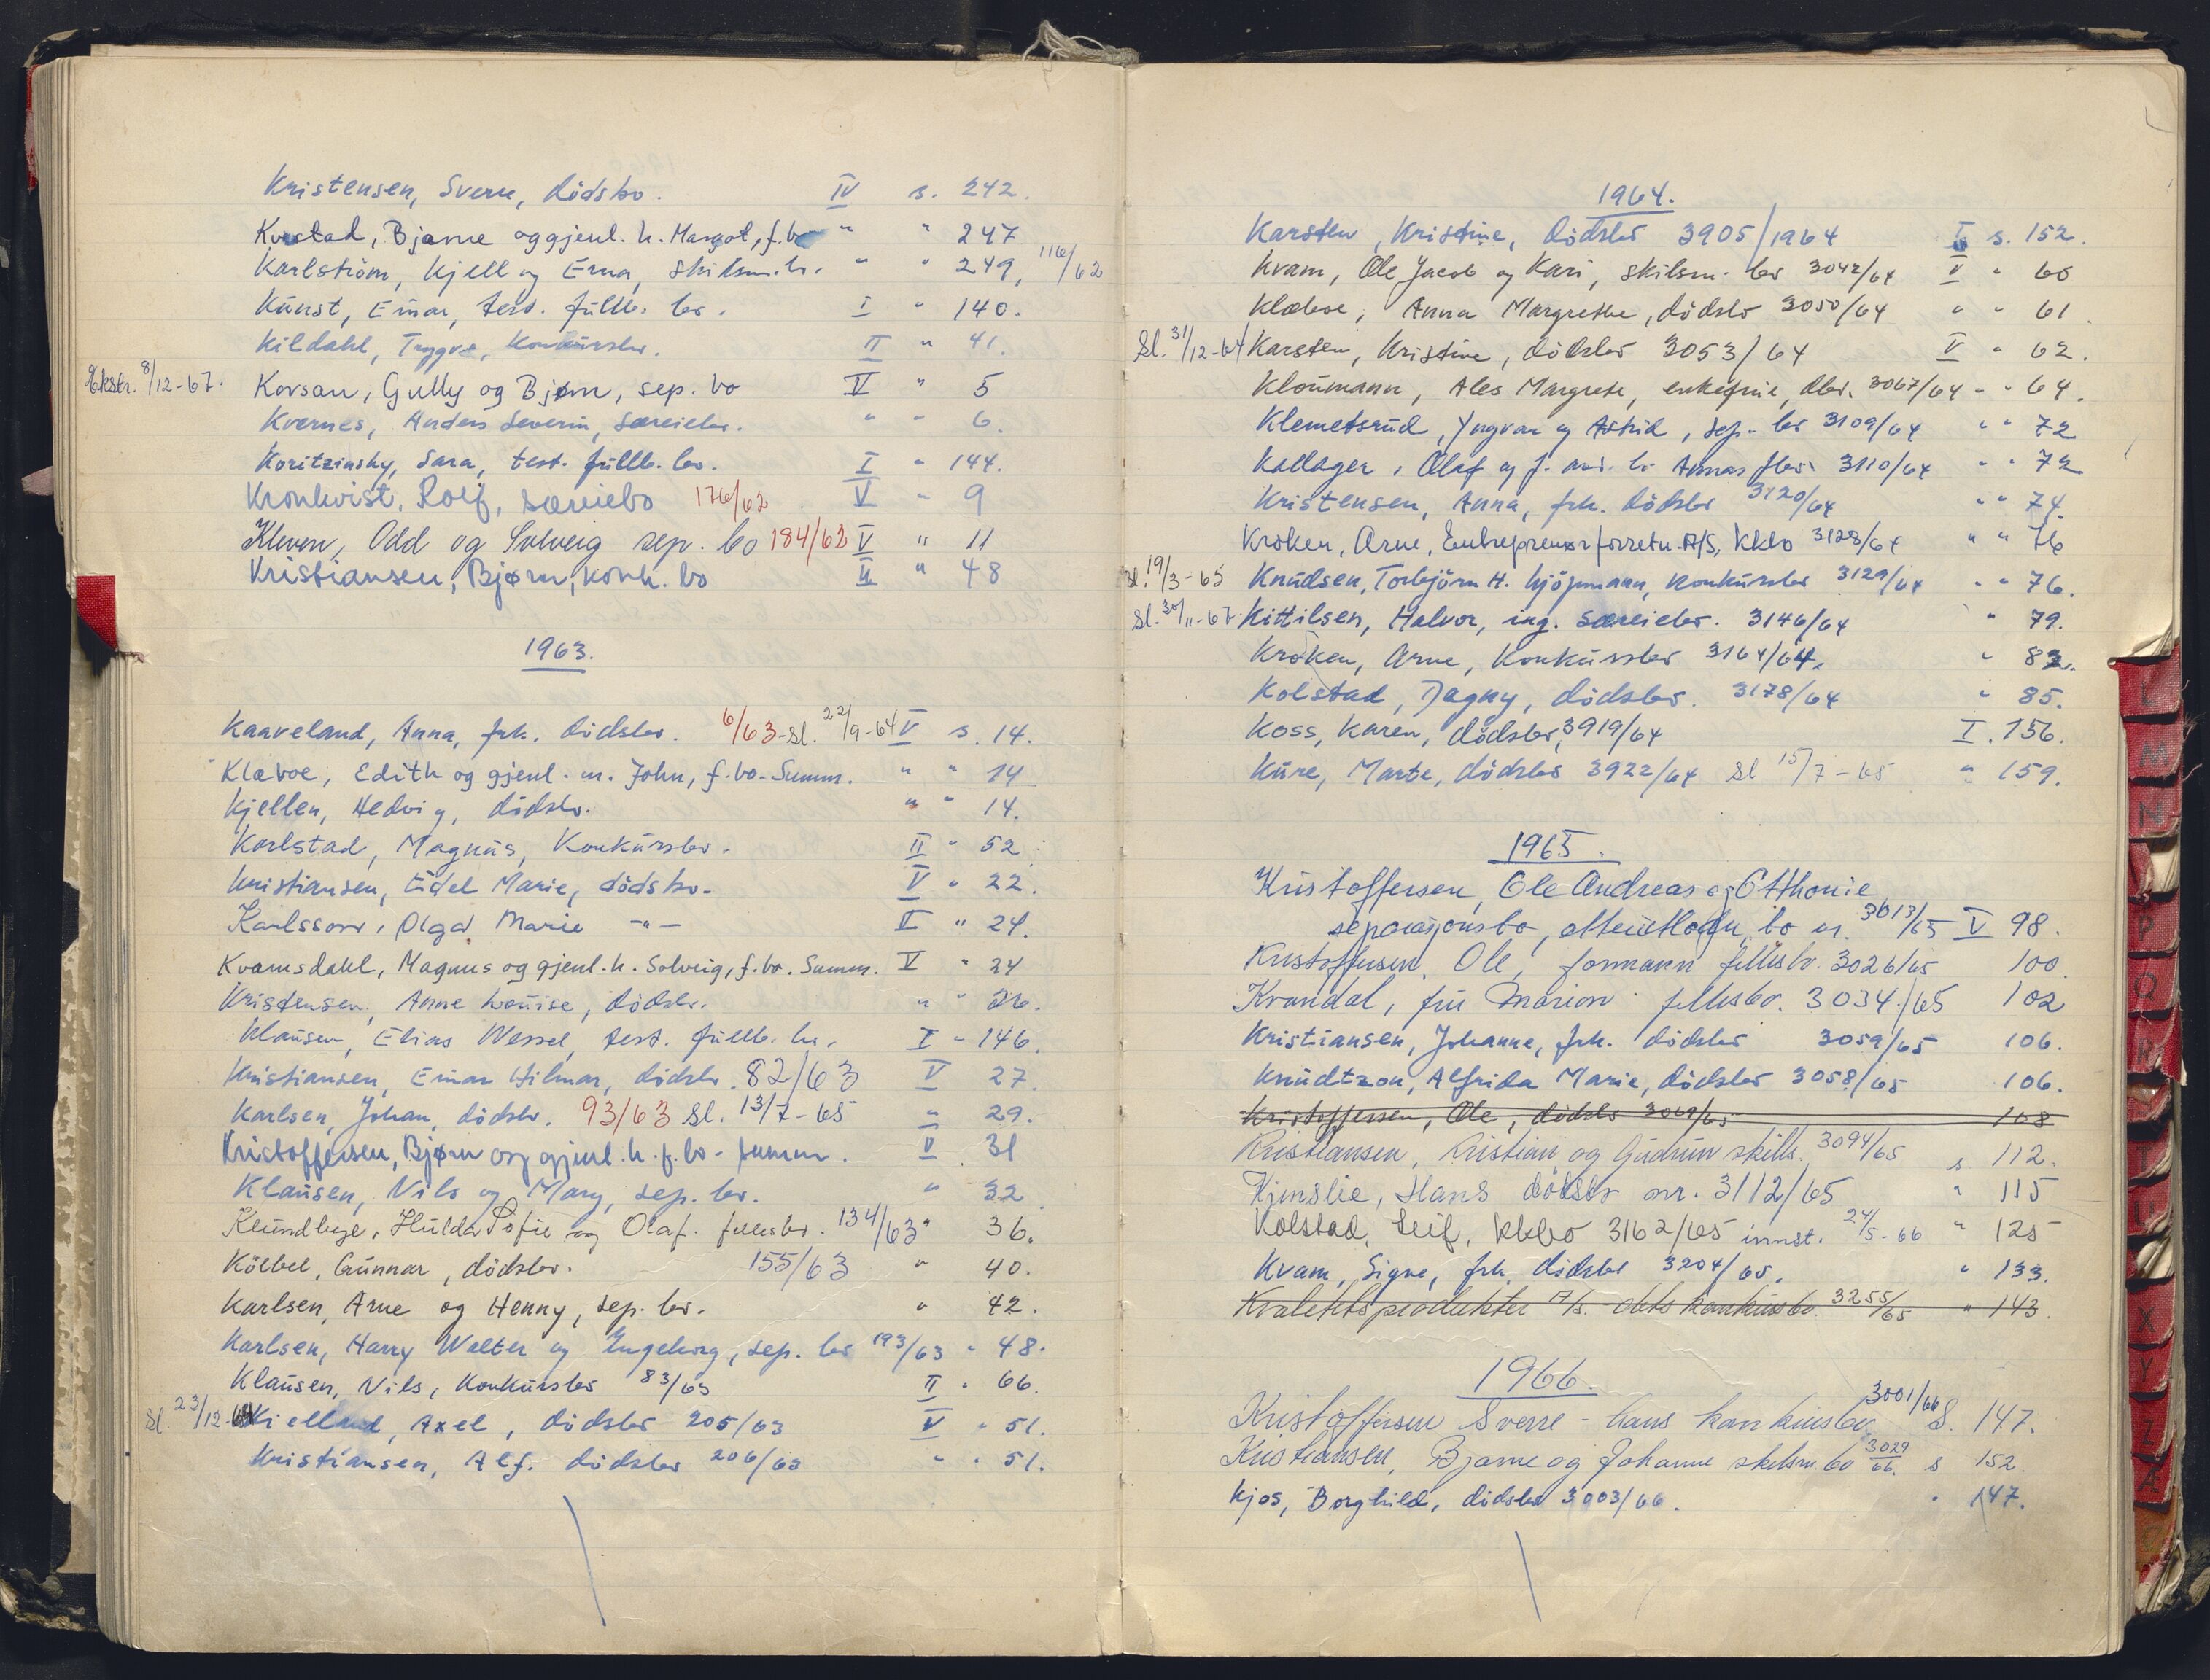 Kristensen, Sverre, dödsbo. IV s. 242.
Kvestad, Bjarne og gjenl. h. Margot, f.bo " " 247
Karlström, Kjell og Erna, skilsm.bo. " " 249, 116/62
Kunst, Einar, test. fullb. bo. I " 140.
Kildahl, Trygve, Konkursbo. II " 41.
Ekstr. 8/12-67. Korsan, Gully og Bjørn, sep. bo V " 5
Kvernes, Anders Severin, særeiebo. " " 6.
Koritzinsky, Sara, test. fullb. bo. I " 144.
Kronkvist, Rolf, særeiebo 176/62 V " 9
Kleven, Odd og Solveig sep. bo 184/62 V " 11
Kristiansen, Bjørn, konk. bo II " 48
1963.
Kaaveland, Anna, frk. dödsbo. 6/63 - Sl. 22/9-64 V s. 14.
Klæboe, Edith og gjenl. m. John, f. bo. Summ. " " 14
Kjellen, Hedvig, dödsbo. " " 14.
Karlstad, Magnus, Konkursbo. II " 52.
Kristiansen, Eidel Marie, dödsbo. V " 22.
Karlsson, Olga Marie -"- V " 24.
Kvamsdahl, Magnus og gjenl. h. Solveig, f. bo. Summ. V " 24
Kristensen, Anne Louise, dödsbo. " " 26.
Klausen, Elias Wessel, test. fullb. bo. I " 146.
Kristiansen, Einar Hilmar, dödsbo. 82/63 V 27.
Karlsen, Johan, dödsbo. 93/63 Sl. 13/7-65 " 29.
Kristoffersen, Bjørn og gjenl. h. f. bo - summ. V 31
Klausen, Nils og Mary, sep. bo. " 32
Hulda Sofie og Olaf. fellesbo. 134/63 " 36.
Kölbel, Gunnar, dödsbo. 155/63 " 40.
Karlsen, Arne og Henny, sep. bo. " 42.
Karlsen, Harry Walter og Ingeborg, sep. bo 193/63 " 48.
Klausen, Nils, Konkursbo 83/63 II " 66.
Sl. 23/12-64 Kielland, Axel, dödsbo 205/63 V " 51.
Kristiansen, Alf. dödsbo 206/63 " " 51.
1964.
Karsten, Kristine, dödsbo 3905/1964 I s. 152.
Kvam, Ole Jacob og Kari, skilsm. bo 3042/64 V " 60
Klæboe, Anna Margrethe, dödsbo 3050/64 " " 61.
Sl. 31/12-64 Karsten, Kristine, dödsbo 3053/64 V " 62.
Kloumann, Ales Margrete, enkefrue, dbo. 3067/64 " " 64.
Klemetsrud, Yngvar og Astrid, sep. bo 3109/64 " " 72
Kallager, Olaf og f. avd. h. Annas fbo. 3110/64 " " 72
Kristensen, Anna, frk. dödsbo 3120/64 " " 74.
Kroken, Arne, Entreprenørforretn. A/S, kkbo 3128/64 " " 76
Sl. 19/3-65 Knudsen, Torbjörn H. kjöpmann, konkursbo 3129/64 " " 76.
Sl. 30/11-67. Kittilsen, Halvor, ing. særeiebo. 3146/64 " 79.
Kroken, Arne, Konkursbo 3164/64. " 82.
Kolstad, Dagny, dödsbo. 3178/64 " 85.
Koss, Karen, dödsbo, 3919/64 I. 156.
Kure, Marte, dödsbo 3922/64 Sl 15/7-65 " 159.
1965.
Kristoffersen, Ole Andreas og Otthonie
separasjonsbo, bo nr. 3013/65 V 98.
Kristoffersen, Ole, formann fellesbo. 3026/65 100.
Kvandal, fru Marion fellesbo. 3034/65 102
Kristiansen, Johanne, frk. dödsbo 3059/65 106.
Knudtzon, Alfrida Marie, dödsbo 3058/65 106.
Kristoffersen, Ole, dödsbo 3069/65 108
Kristiansen, Kristian og Gudrun skills. 3094/65 s 112.
Kjenslie, Hans dödsbo nr. 3112/65 " 115
Kolstad, Leif, kkbo 3162/65 innst. 24/5-66 " 125
Kvam, Signe, frk. dödsbo 3204/65. " 133.
Kvalitetsprodukter A/s. dets konkursbo. 3255/65 " 143.
1966.
Kristoffersen Sverre - hans konkursbo 3001/66 S. 147.
Kristiansen, Bjarne og Johanne skilsm. bo 3029/66. s 152.
Kjos, Borghild, dödsbo 3003/66. " 147.
L
M
N
P
Q
R
T
U
X
Y
Z
Æ